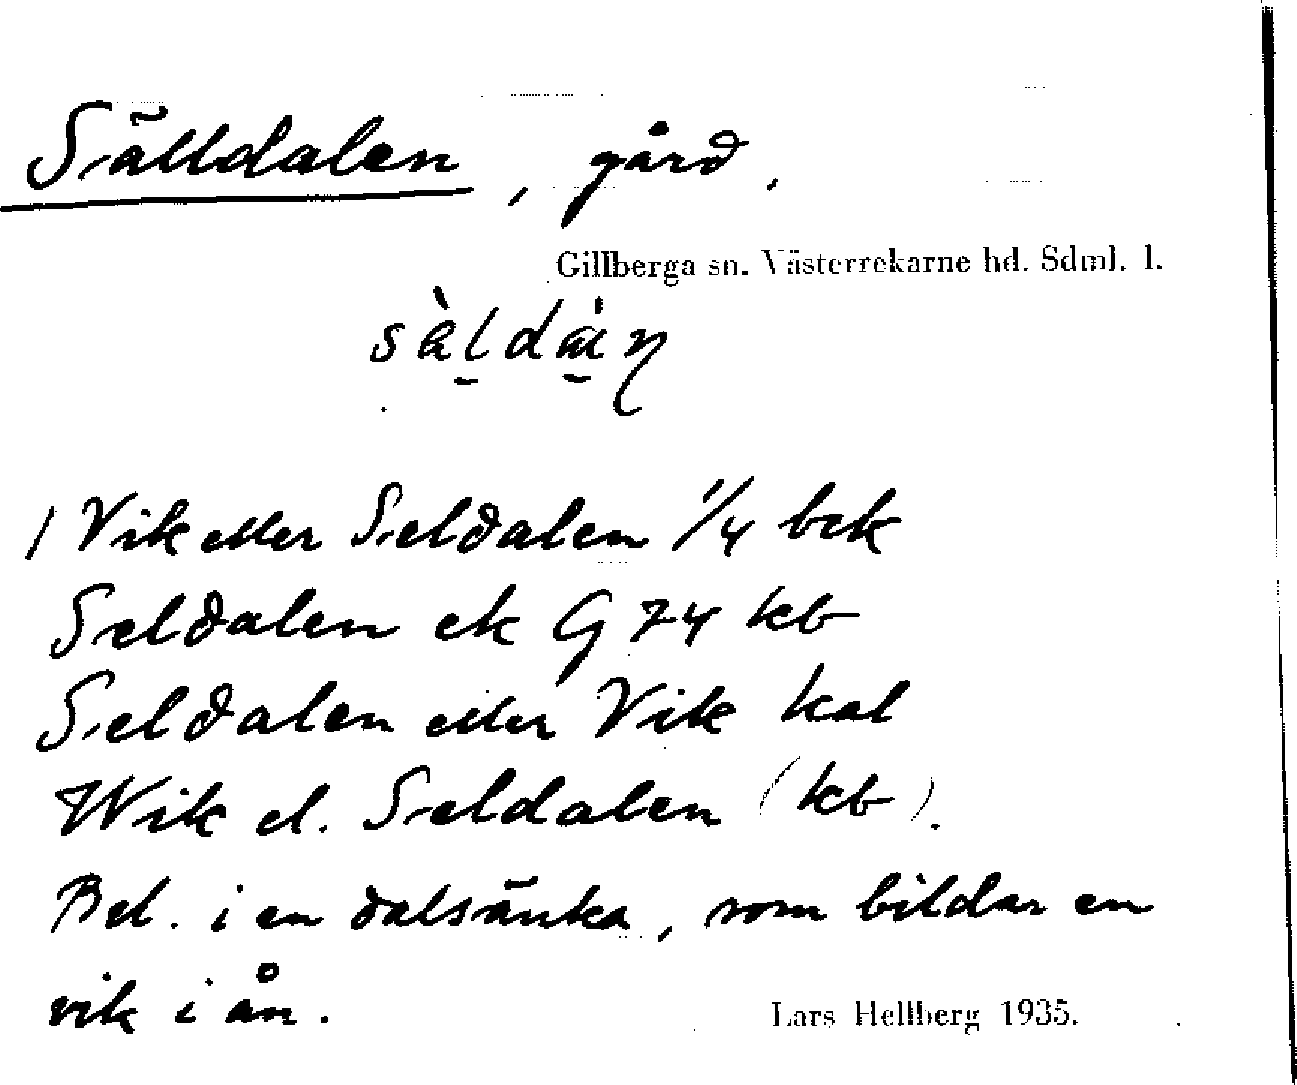 Sälldalen, gård.
Gillberga sn. Västerrekarne hd. Sdml. l.
/ Vik eller Seldalen 1/4 bek
Seldalen ek G 74 kb
Seldalen eller Vik kal
Wik el. Seldalen (kb).
Bel. i en dalsänka, som bildar en
vik i ån.
Lars Hellberg 1935.